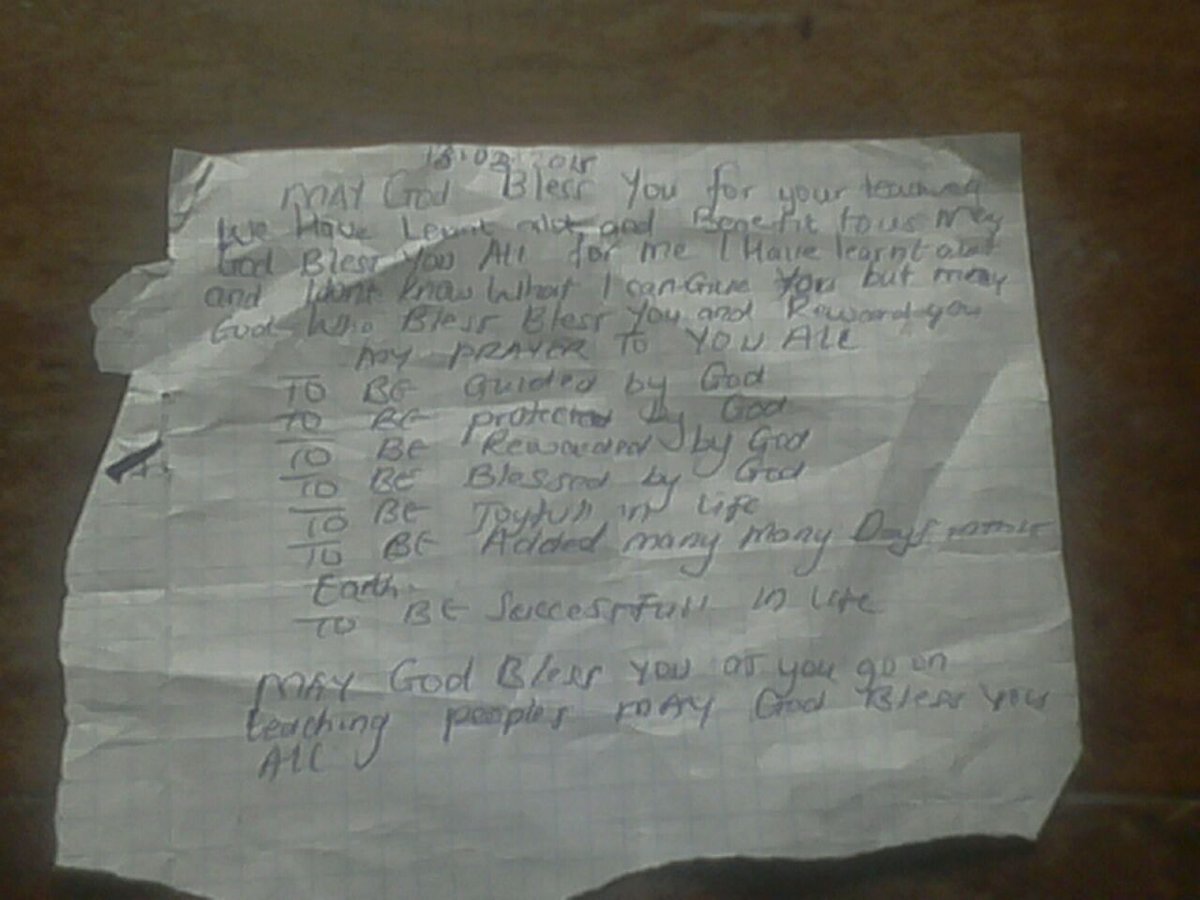 MAY God Bless You for your teaching
We Have Learnt alot and Benefit to us May
God Bless You All for me I Have learnt alot
and I dont know What I can Give You but may
God Who Bless Bless You and Reward you
MY PRAYER TO YOU ALL
TO BE Guided by God
TO BE protected by God
TO BE Rewarded by God
TO BE Blessed by God
TO BE Joyfull in Life
TO BE Added many many Days
Earth.
TO BE Successfull in Life
MAY God Bless You as you go on
teaching peoples MAY God Bless You
All